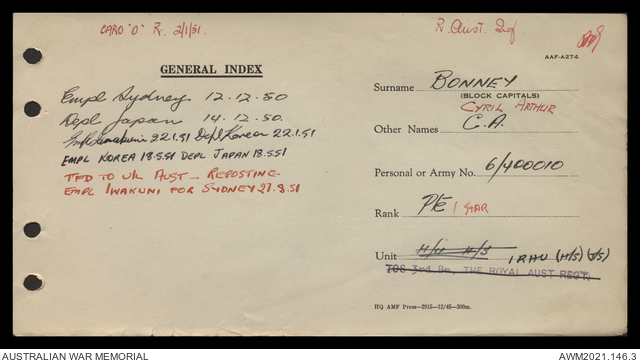 CARO "O" R. 2/1/51
R. Aust. Inf.
AAF-A274
GENERAL INDEX
Empl Sydney 12.12.50
Depl Japan 14.12.50.
22.1.51 Depl Korea 22.1.51
EMPL KOREA 18.5.51 DEPL JAPAN 18.5.51
TFD TO U/L AUST - REPOSTING
EMPL IWAKUNI FOR SYDNEY 27.8.51
Surname BONNEY
(BLOCK CAPITALS)
CYRIL ARTHUR
Other Names C.A.
Personal or Army No. 6/400010
Rank Pte 1 STAR
Unit H/U H/S 1RHU (H/S) (J/S)
TOS 3rd Bn, THE ROYAL AUST REGT.
HQ AMF Press—2915—12/45—300m.
AUSTRALIAN WAR MEMORIAL
AWM2021.146.3